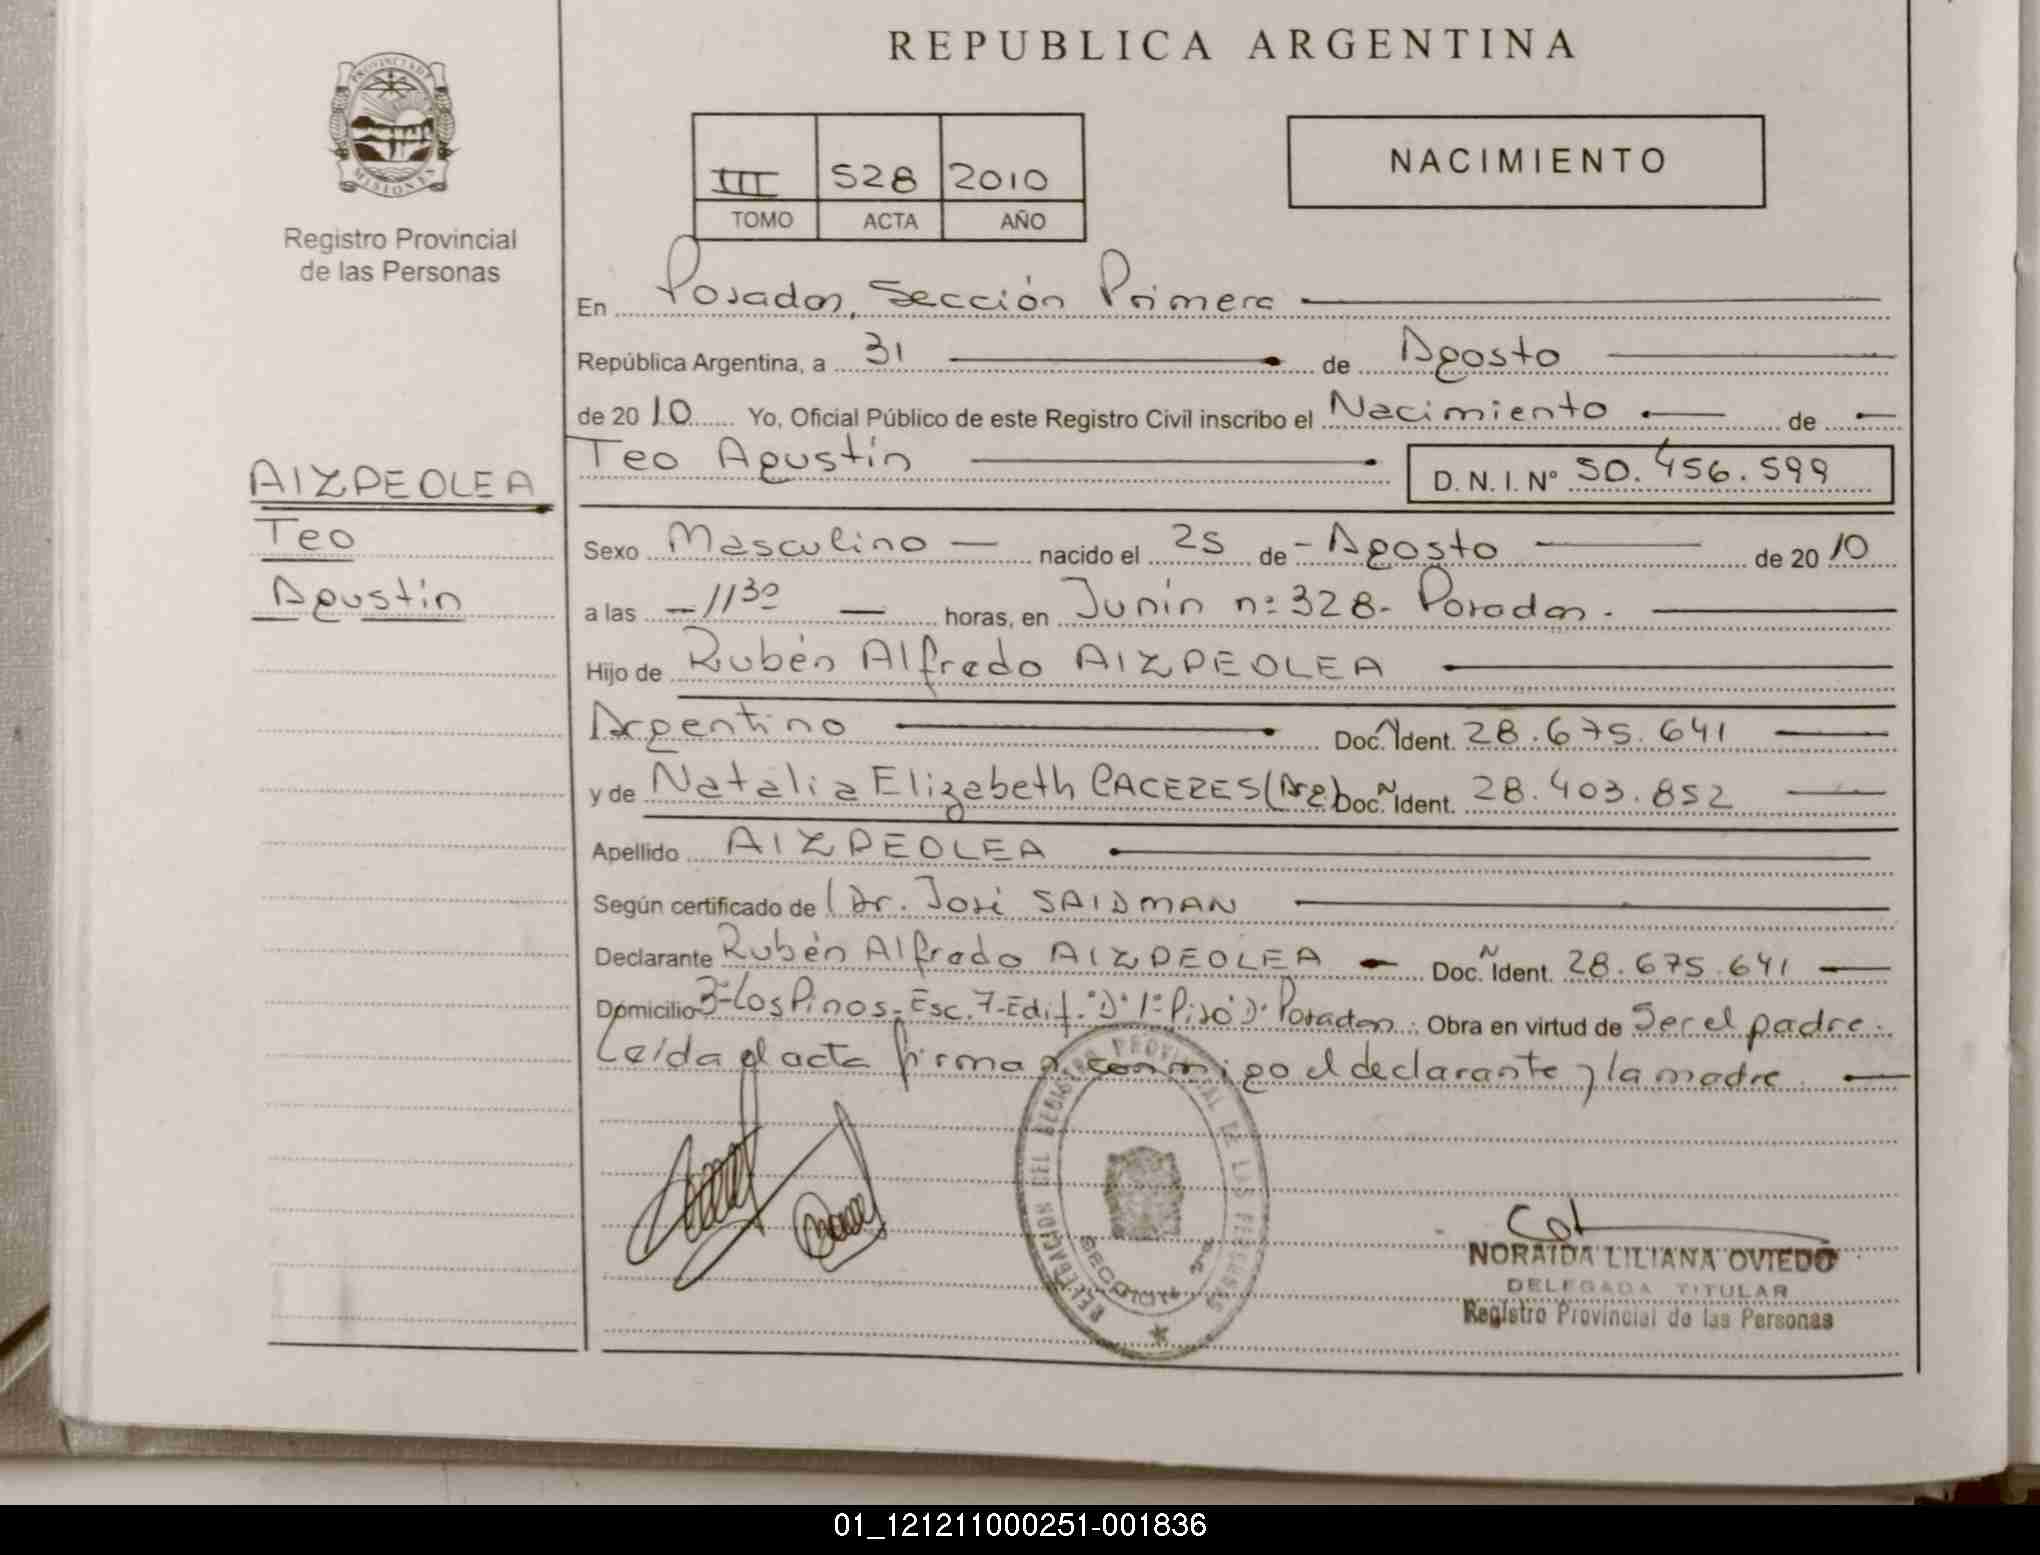 REPUBLICA ARGENTINA
PROVINCIA DE MISIONES
Registro Provincial
de las Personas
III 528 2010
TOMO ACTA AÑO
NACIMIENTO
En Posadas, Sección Primera
República Argentina, a 31 de Agosto
de 2010 Yo, Oficial Público de este Registro Civil inscribo el Nacimiento de
Teo Agustín D. N. I. Nº 50.456.599
AIZPEOLEA
Teo
Agustín
Sexo Masculino nacido el 25 de Agosto de 2010
a las 11 30 horas, en Junín nº 328- Posadas.
Hijo de Rubén Alfredo AIZPEOLEA
Argentino Doc. Ident. 28.675.641
y de Natalia Elizabeth CACERES (Arg) Doc. Ident. 28.403.852
Apellido AIZPEOLEA
Según certificado del Dr. José SAIDMAN
Declarante Rubén Alfredo AIZPEOLEA Doc. Ident. 28.675.641
Domicilio Los Pinos-Esc. 7-Edif. "D" 1º Piso "D" Posadas. Obra en virtud de Ser el padre.
Leída el acta firman conmigo el declarante y la madre
DELEGACION DEL REGISTRO PROVINCIAL DE LAS PERSONAS
SECCION
NORAIDA LILIANA OVIEDO
DELEGADA TITULAR
Registro Provincial de las Personas
01_121211000251-001836